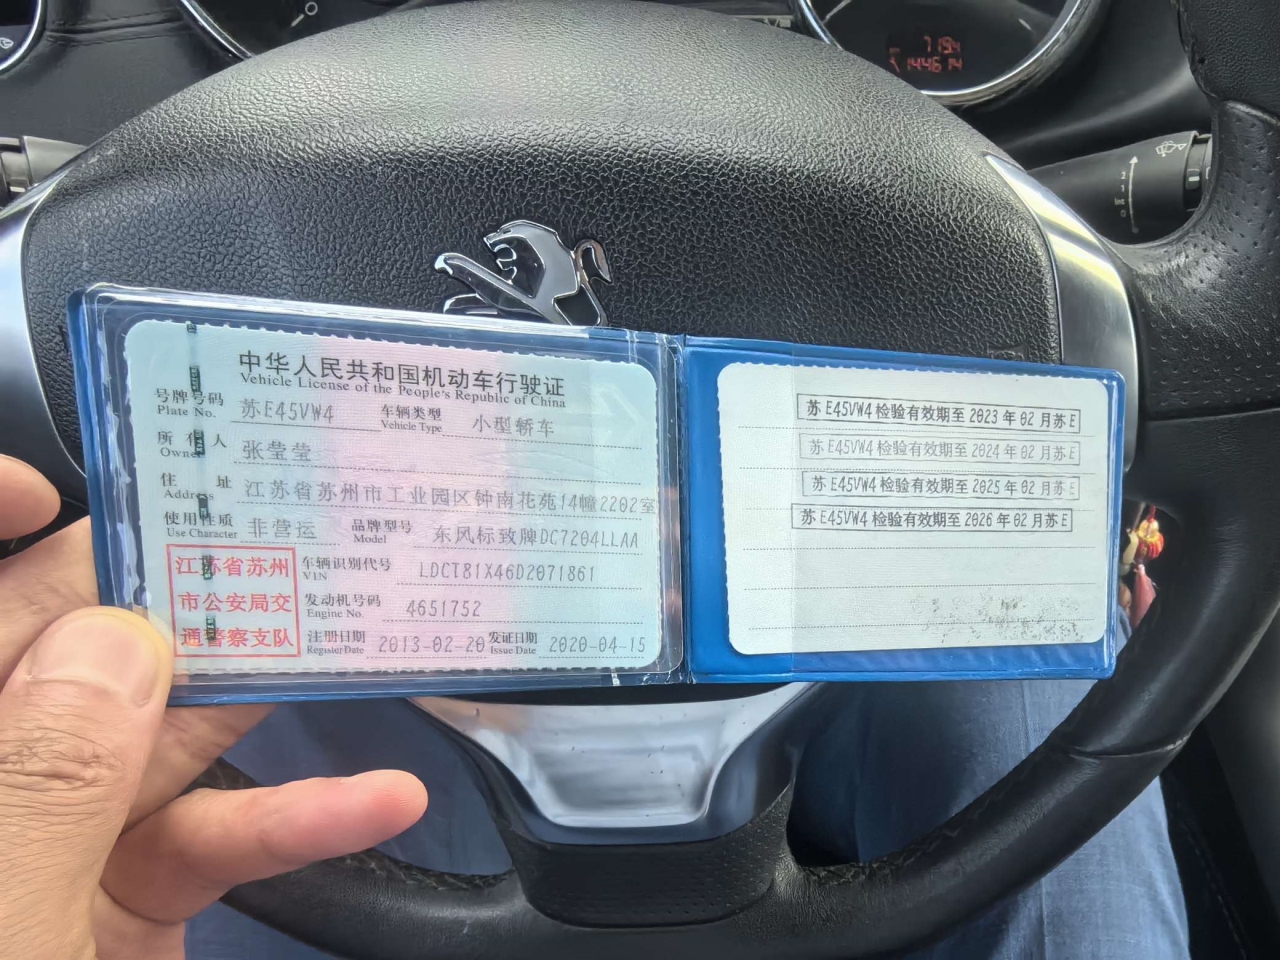 7194
144614
中华人民共和国机动车行驶证
Vehicle License of the People's Republic of China
号牌号码 苏E45VW4 车辆类型 小型轿车
Plate No. Vehicle Type
所有人 张莹莹
Owner
住址 江苏省苏州市工业园区钟南花苑14幢2202室
Address
使用性质 非营运 品牌型号 东风标致牌DC7204LLAA
Use Character Model
江苏省苏州
市公安局交
通警察支队
车辆识别代号 LDCT81X46D2071861
VIN
发动机号码 4651752
Engine No.
注册日期 2013-02-20 发证日期 2020-04-15
Register Date Issue Date
苏E45VW4检验有效期至2023年02月苏E
苏E45VW4检验有效期至2024年02月苏E
苏E45VW4检验有效期至2025年02月苏E
苏E45VW4检验有效期至2026年02月苏E